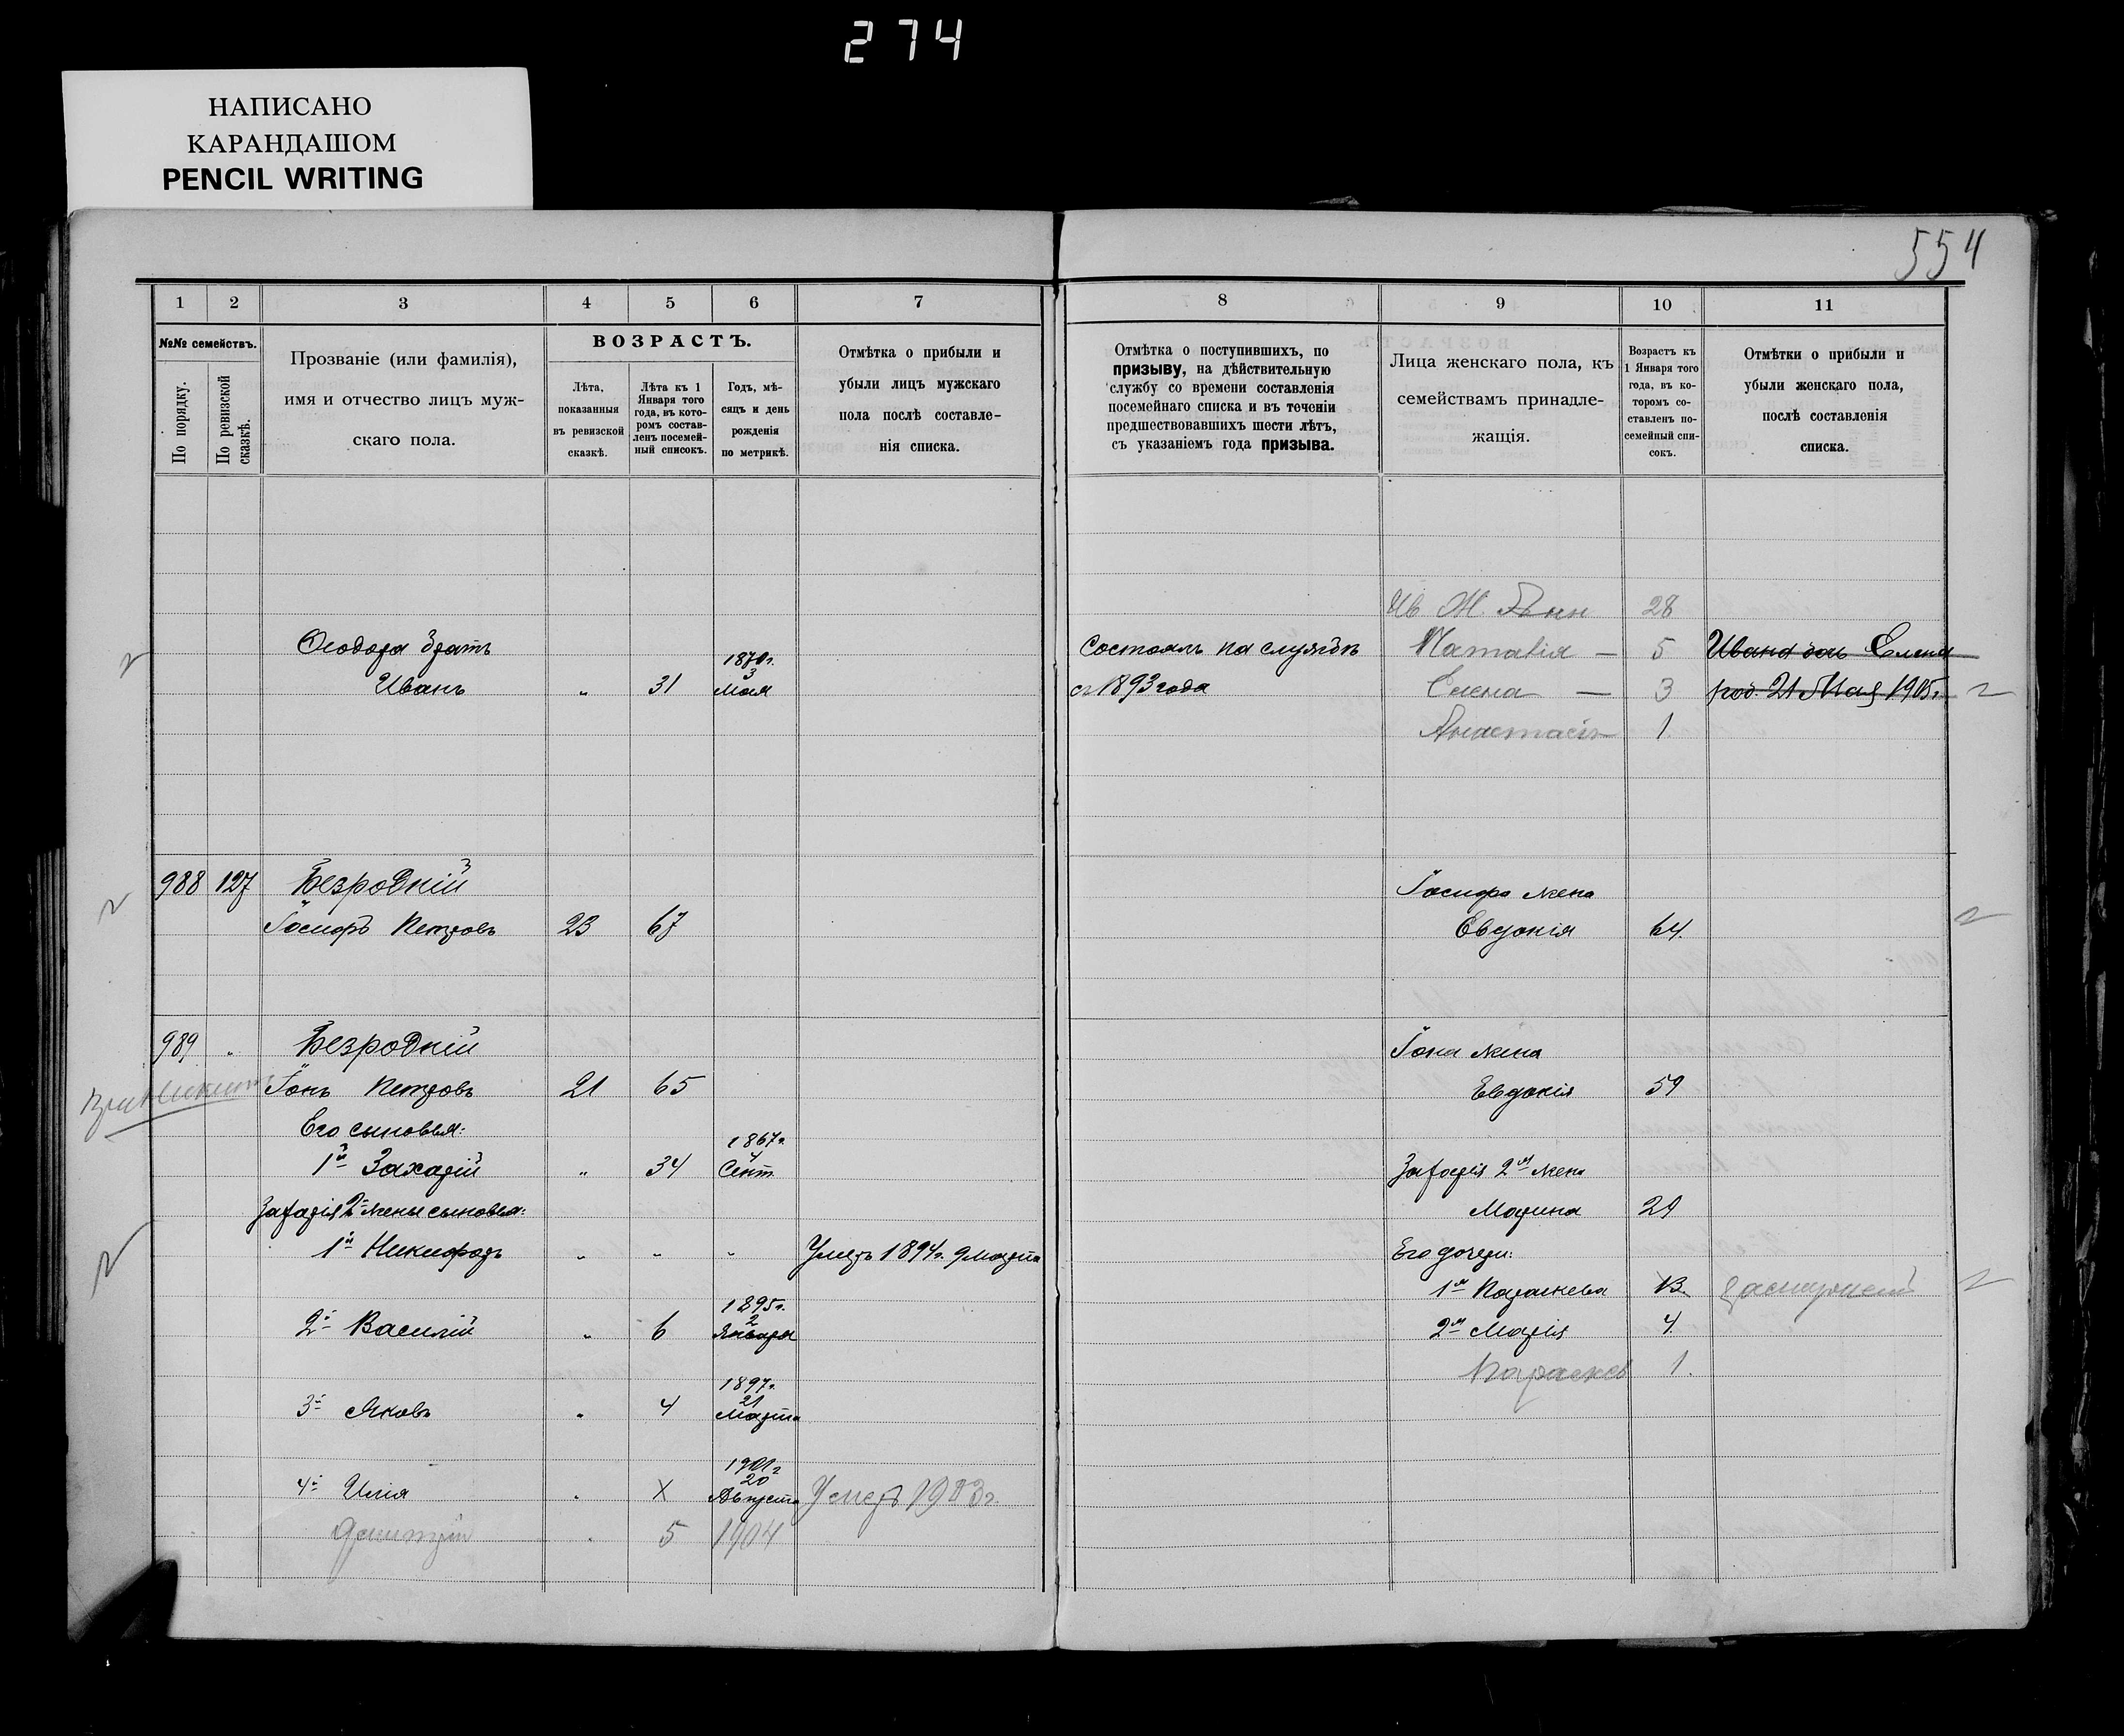 274
НАПИСАНО
КАРАНДАШОМ
PENCIL WRITING
554
1 2 3 4 5 6 7
№№ семействъ.
По порядку.
По ревизской сказкѣ.
Прозваніе (или фамилія),
имя и отчество лицъ муж-
скаго пола.
ВОЗРАСТЪ.
Лѣта,
показанныя
въ ревизской
сказкѣ.
Лѣта къ 1
Января того
года, въ кото-
ромъ состав-
ленъ посемей-
ный списокъ.
Годъ, мѣ-
сяцъ и день
рожденія
по метрикѣ.
Отмѣтка о прибыли и
убыли лицъ мужскаго
пола послѣ составле-
нія списка.
8 9 10 11
Отмѣтка о поступившихъ, по
призыву, на дѣйствительную
службу со времени составленія
посемейнаго списка и въ теченіи
предшествовавшихъ шести лѣтъ,
съ указаніемъ года призыва.
Лица женскаго пола, къ
семействамъ принадле-
жащія.
Возрастъ къ
1 Января того
года, въ ко-
торомъ со-
ставленъ по-
семейный спи-
сокъ.
Отмѣтки о прибыли и
убыли женскаго пола,
послѣ составленія
списка.
Ив. Ж. 28
Ѳеодора братъ
Иванъ " 31 1870г. 3 Мая
Состоялъ на службѣ
съ 1893 года
Наталія — 5
Ивана дочь Елена
Елена — 3
род. 21 Мая 1905г.
Анастасія 1
988 127 Безродній
Іосифъ Петровъ 23 67
Іосифа жена
Евдокія 64.
989 " Безродній
Іонъ Петровъ 21 65
Іона жена
Евдокія 59
Его сыновья:
1й Захарій " 34 1867г. 4 Сент.
Захарія 2я жена
Марина 29
Захарія 2й жены сыновья:
1й Никифоръ " " " Умеръ 1894г. 9 марта
Его дочери:
1я Параскева 13.
2й Василій " 6 1895г. 2 Января
2я Марія 4.
Параскев 1.
3й Яковъ " 4 1897г. 21 Марта
4й Илія " Х 1901г 20 Августа Умеръ 1903г.
Дмитрій " 5 1904